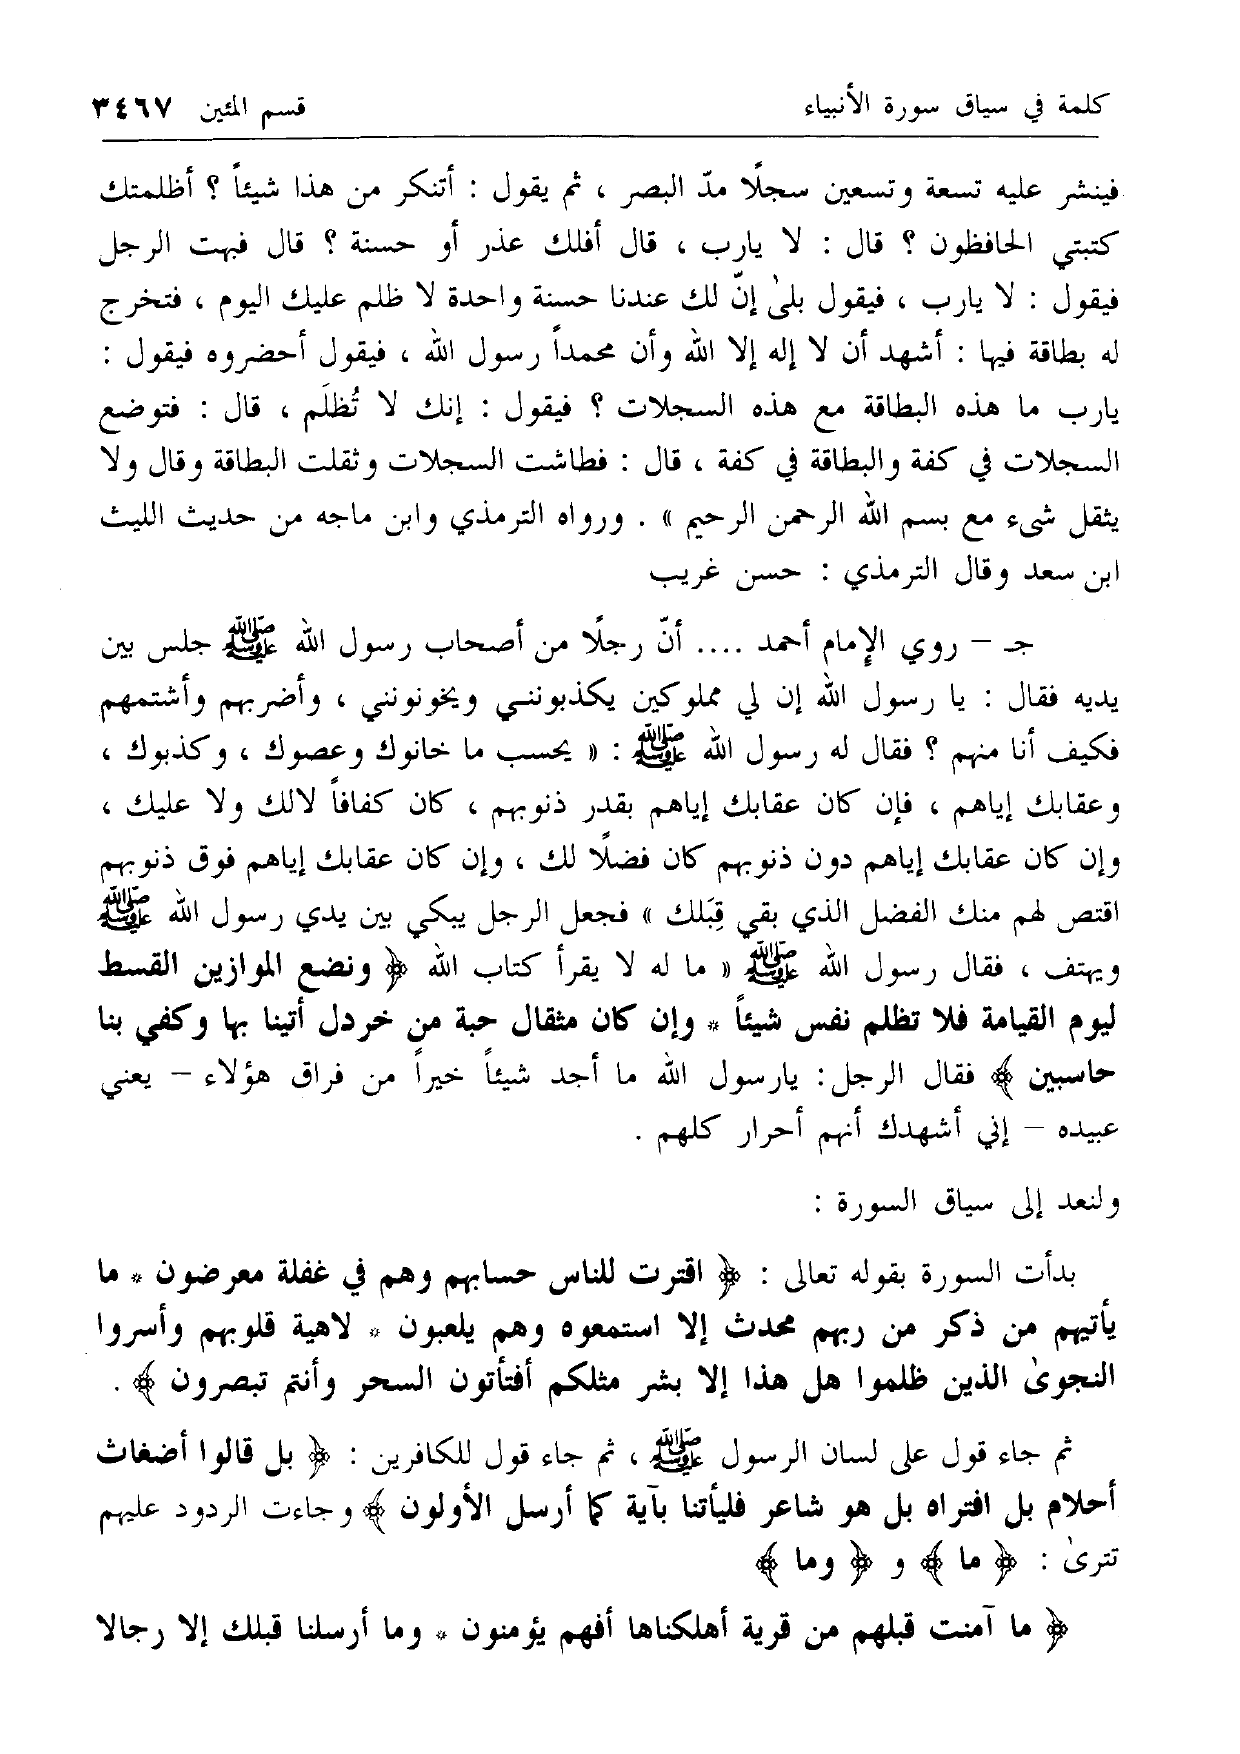 كلمة في سياق سورة الأنبياء قسم المئين ٣٤٦٧
فينشر عليه تسعة وتسعين سجلًا مدّ البصر ، ثم يقول : أتنكر من هذا شيئاً ؟ أظلمتك
كتبتي الحافظون ؟ قال : لا يارب ، قال أفلك عذر أو حسنة ؟ قال فبهت الرجل
فيقول : لا يارب ، فيقول بلىٰ إنّ لك عندنا حسنة واحدة لا ظلم عليك اليوم ، فتخرج
له بطاقة فيها : أشهد أن لا إله إلا الله وأن محمداً رسول الله ، فيقول أحضروه فيقول :
يارب ما هذه البطاقة مع هذه السجلات ؟ فيقول : إنك لا تُظلَم ، قال : فتوضع
السجلات في كفة والبطاقة في كفة ، قال : فطاشت السجلات وثقلت البطاقة وقال ولا
يثقل شيء مع بسم الله الرحمن الرحيم » . ورواه الترمذي وابن ماجه من حديث الليث
ابن سعد وقال الترمذي : حسن غريب
جـ – روي الإمام أحمد .... أنّ رجلًا من أصحاب رسول الله ﷺ جلس بين
يديه فقال : يا رسول الله إن لي مملوكين يكذبونني ويخونونني ، وأضربهم وأشتمهم
فكيف أنا منهم ؟ فقال له رسول الله ﷺ : « يحسب ما خانوك وعصوك ، وكذبوك ،
وعقابك إياهم ، فإن كان عقابك إياهم بقدر ذنوبهم ، كان كفافاً لالك ولا عليك ،
وإن كان عقابك إياهم دون ذنوبهم كان فضلًا لك ، وإن كان عقابك إياهم فوق ذنوبهم
اقتص لهم منك الفضل الذي بقي قِبَلك » فجعل الرجل يبكي بين يدي رسول الله ﷺ
ويهتف ، فقال رسول الله ﷺ « ما له لا يقرأ كتاب الله ﴿ ونضع الموازين القسط
ليوم القيامة فلا تظلم نفس شيئاً * وإن كان مثقال حبة من خردل أتينا بها وكفي بنا
حاسبين ﴾ فقال الرجل: يارسول الله ما أجد شيئاً خيراً من فراق هؤلاء – يعني
عبيده – إني أشهدك أنهم أحرار كلهم .
ولنعد إلى سياق السورة :
بدأت السورة بقوله تعالى : ﴿ اقترت للناس حسابهم وهم في غفلة معرضون * ما
يأتيهم من ذكر من ربهم محدث إلا استمعوه وهم يلعبون * لاهية قلوبهم وأسروا
النجوىٰ الذين ظلموا هل هذا إلا بشر مثلكم أفتأتون السحر وأنتم تبصرون ﴾ .
ثم جاء قول على لسان الرسول ﷺ ، ثم جاء قول للكافرين : ﴿ بل قالوا أضغاث
أحلام بل افتراه بل هو شاعر فليأتنا بآية كما أرسل الأولون ﴾ وجاءت الردود عليهم
تترىٰ : ﴿ ما ﴾ و ﴿ وما ﴾
﴿ ما آمنت قبلهم من قرية أهلكناها أفهم يؤمنون * وما أرسلنا قبلك إلا رجالا